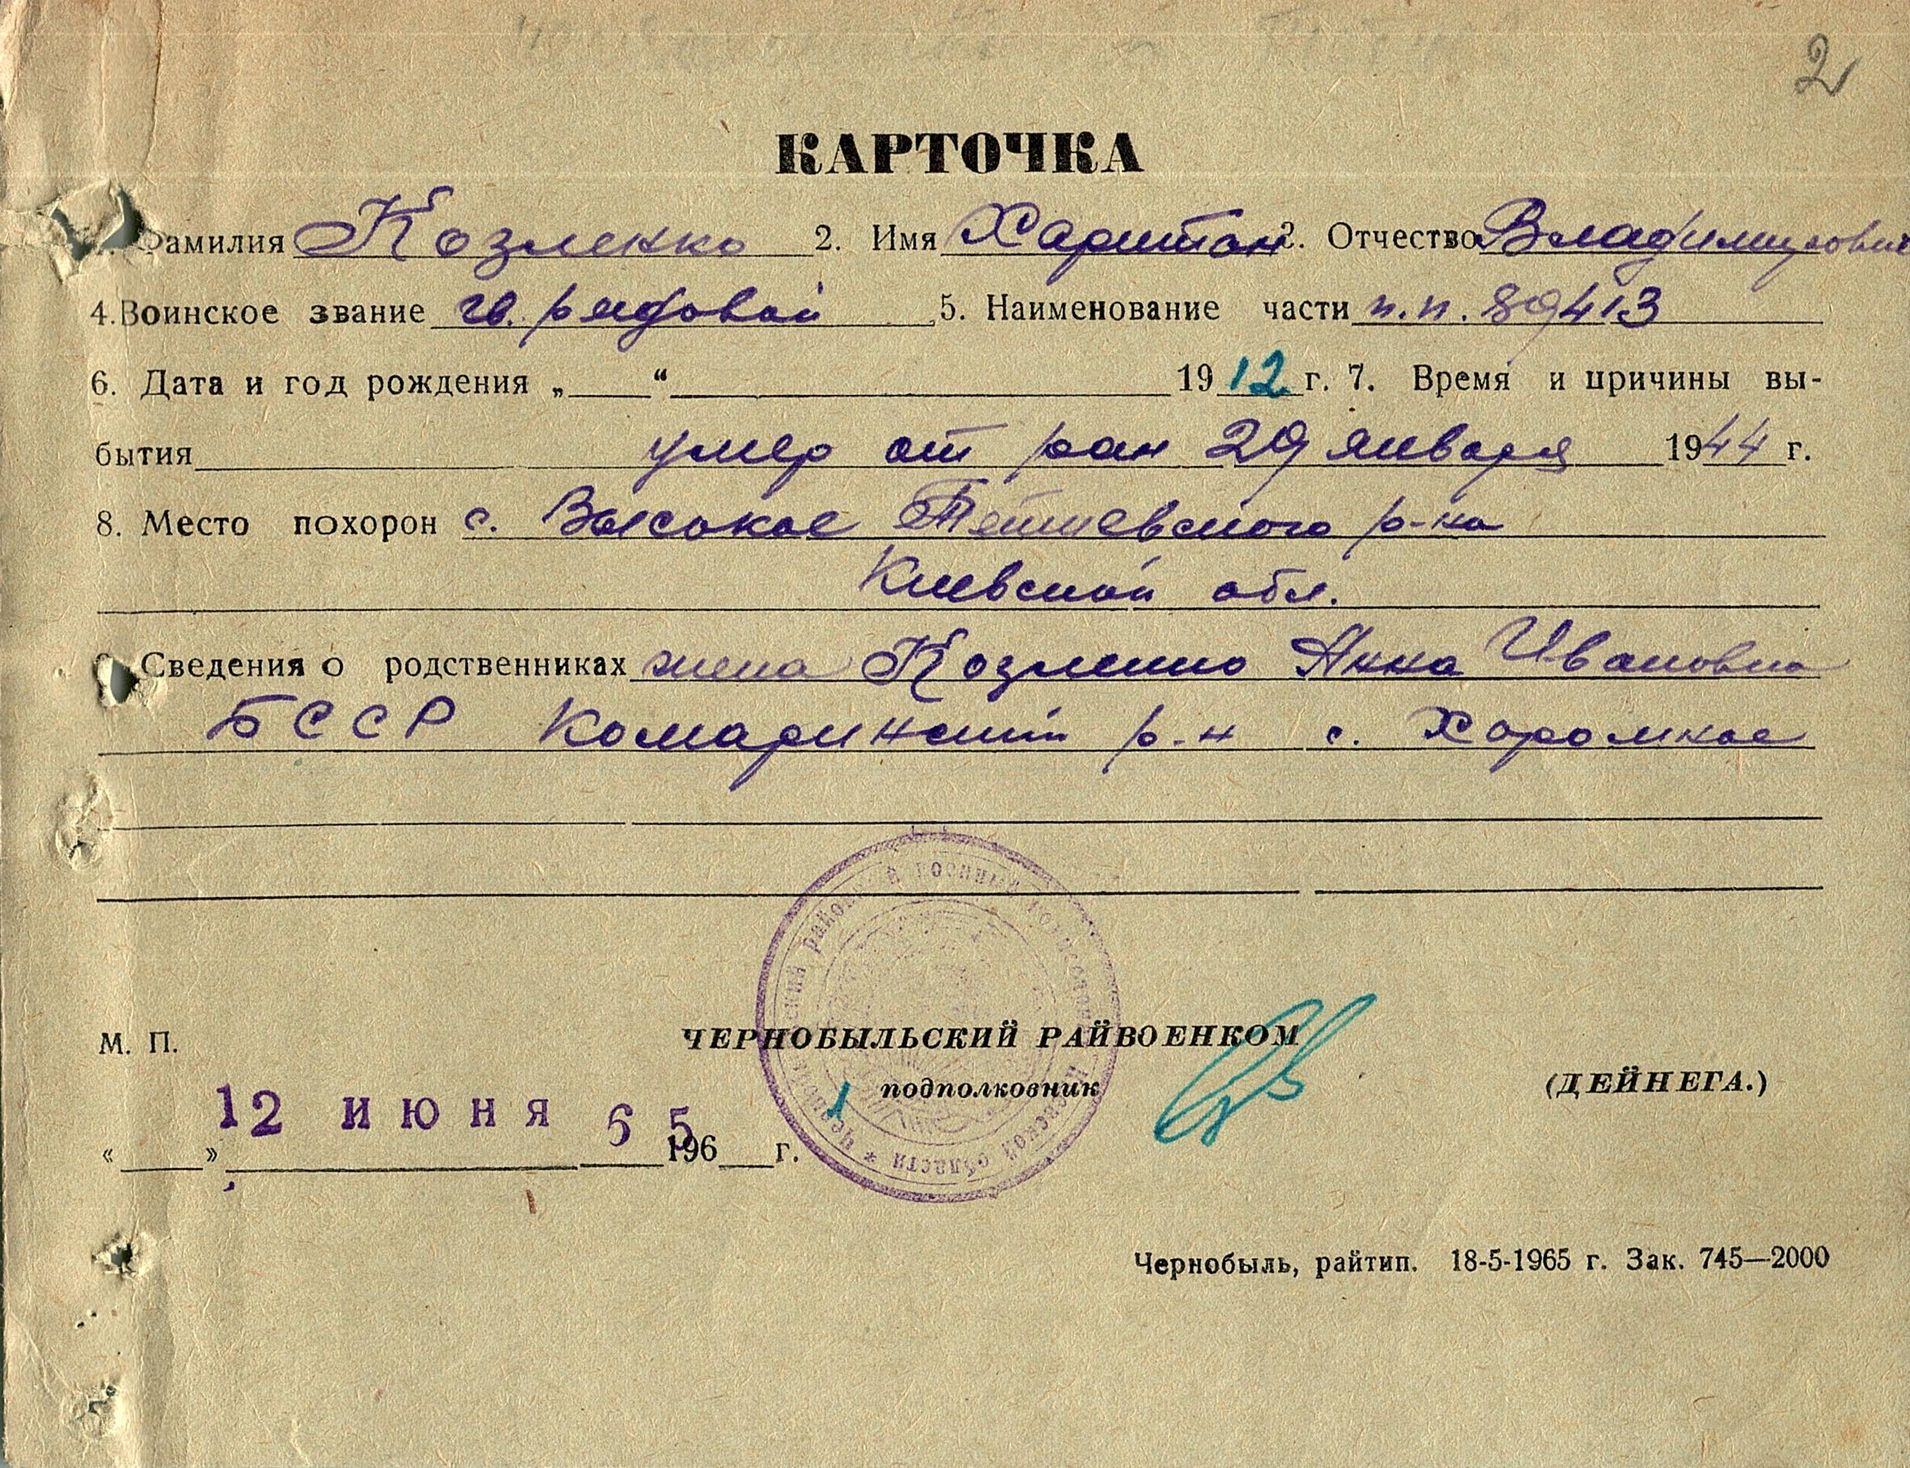 2
КАРТОЧКА
Фамилия Козленко 2. Имя Харитон 3. Отчество Владимирович
4. Воинское звание гв. рядовой 5. Наименование части п.п. 39413
6. Дата и год рождения „ “ 1912 г. 7. Время и причины вы-
бытия умер от ран 29 января 1944 г.
8. Место похорон с. Высокое р-на
Киевской обл.
Сведения о родственниках жена Козленко Анна Ивановна
БССР Комаринский р-н с. Хоромное
М. П. ЧЕРНОБЫЛЬСКИЙ РАЙВОЕНКОМ
1 подполковник (ДЕЙНЕГА.)
12 ИЮНЯ 65
« » 196 г.
Чернобыль, райтип. 18-5-1965 г. Зак. 745—2000